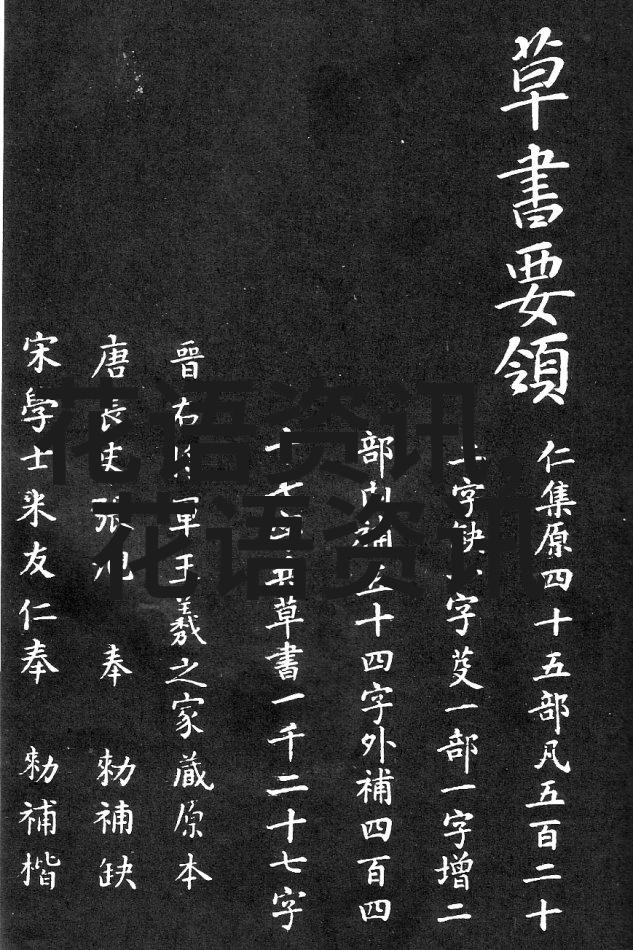 草書要領
仁集原四十五部凡五百二十
二字缺字芟一部一字增二
部内補五十四字外補四百四
十七共草書一千二十七字
晉右將軍王羲之家藏原本
唐長史張旭 奉 勅補缺
宋學士米友仁奉 勅補楷
花语资讯
花语资讯